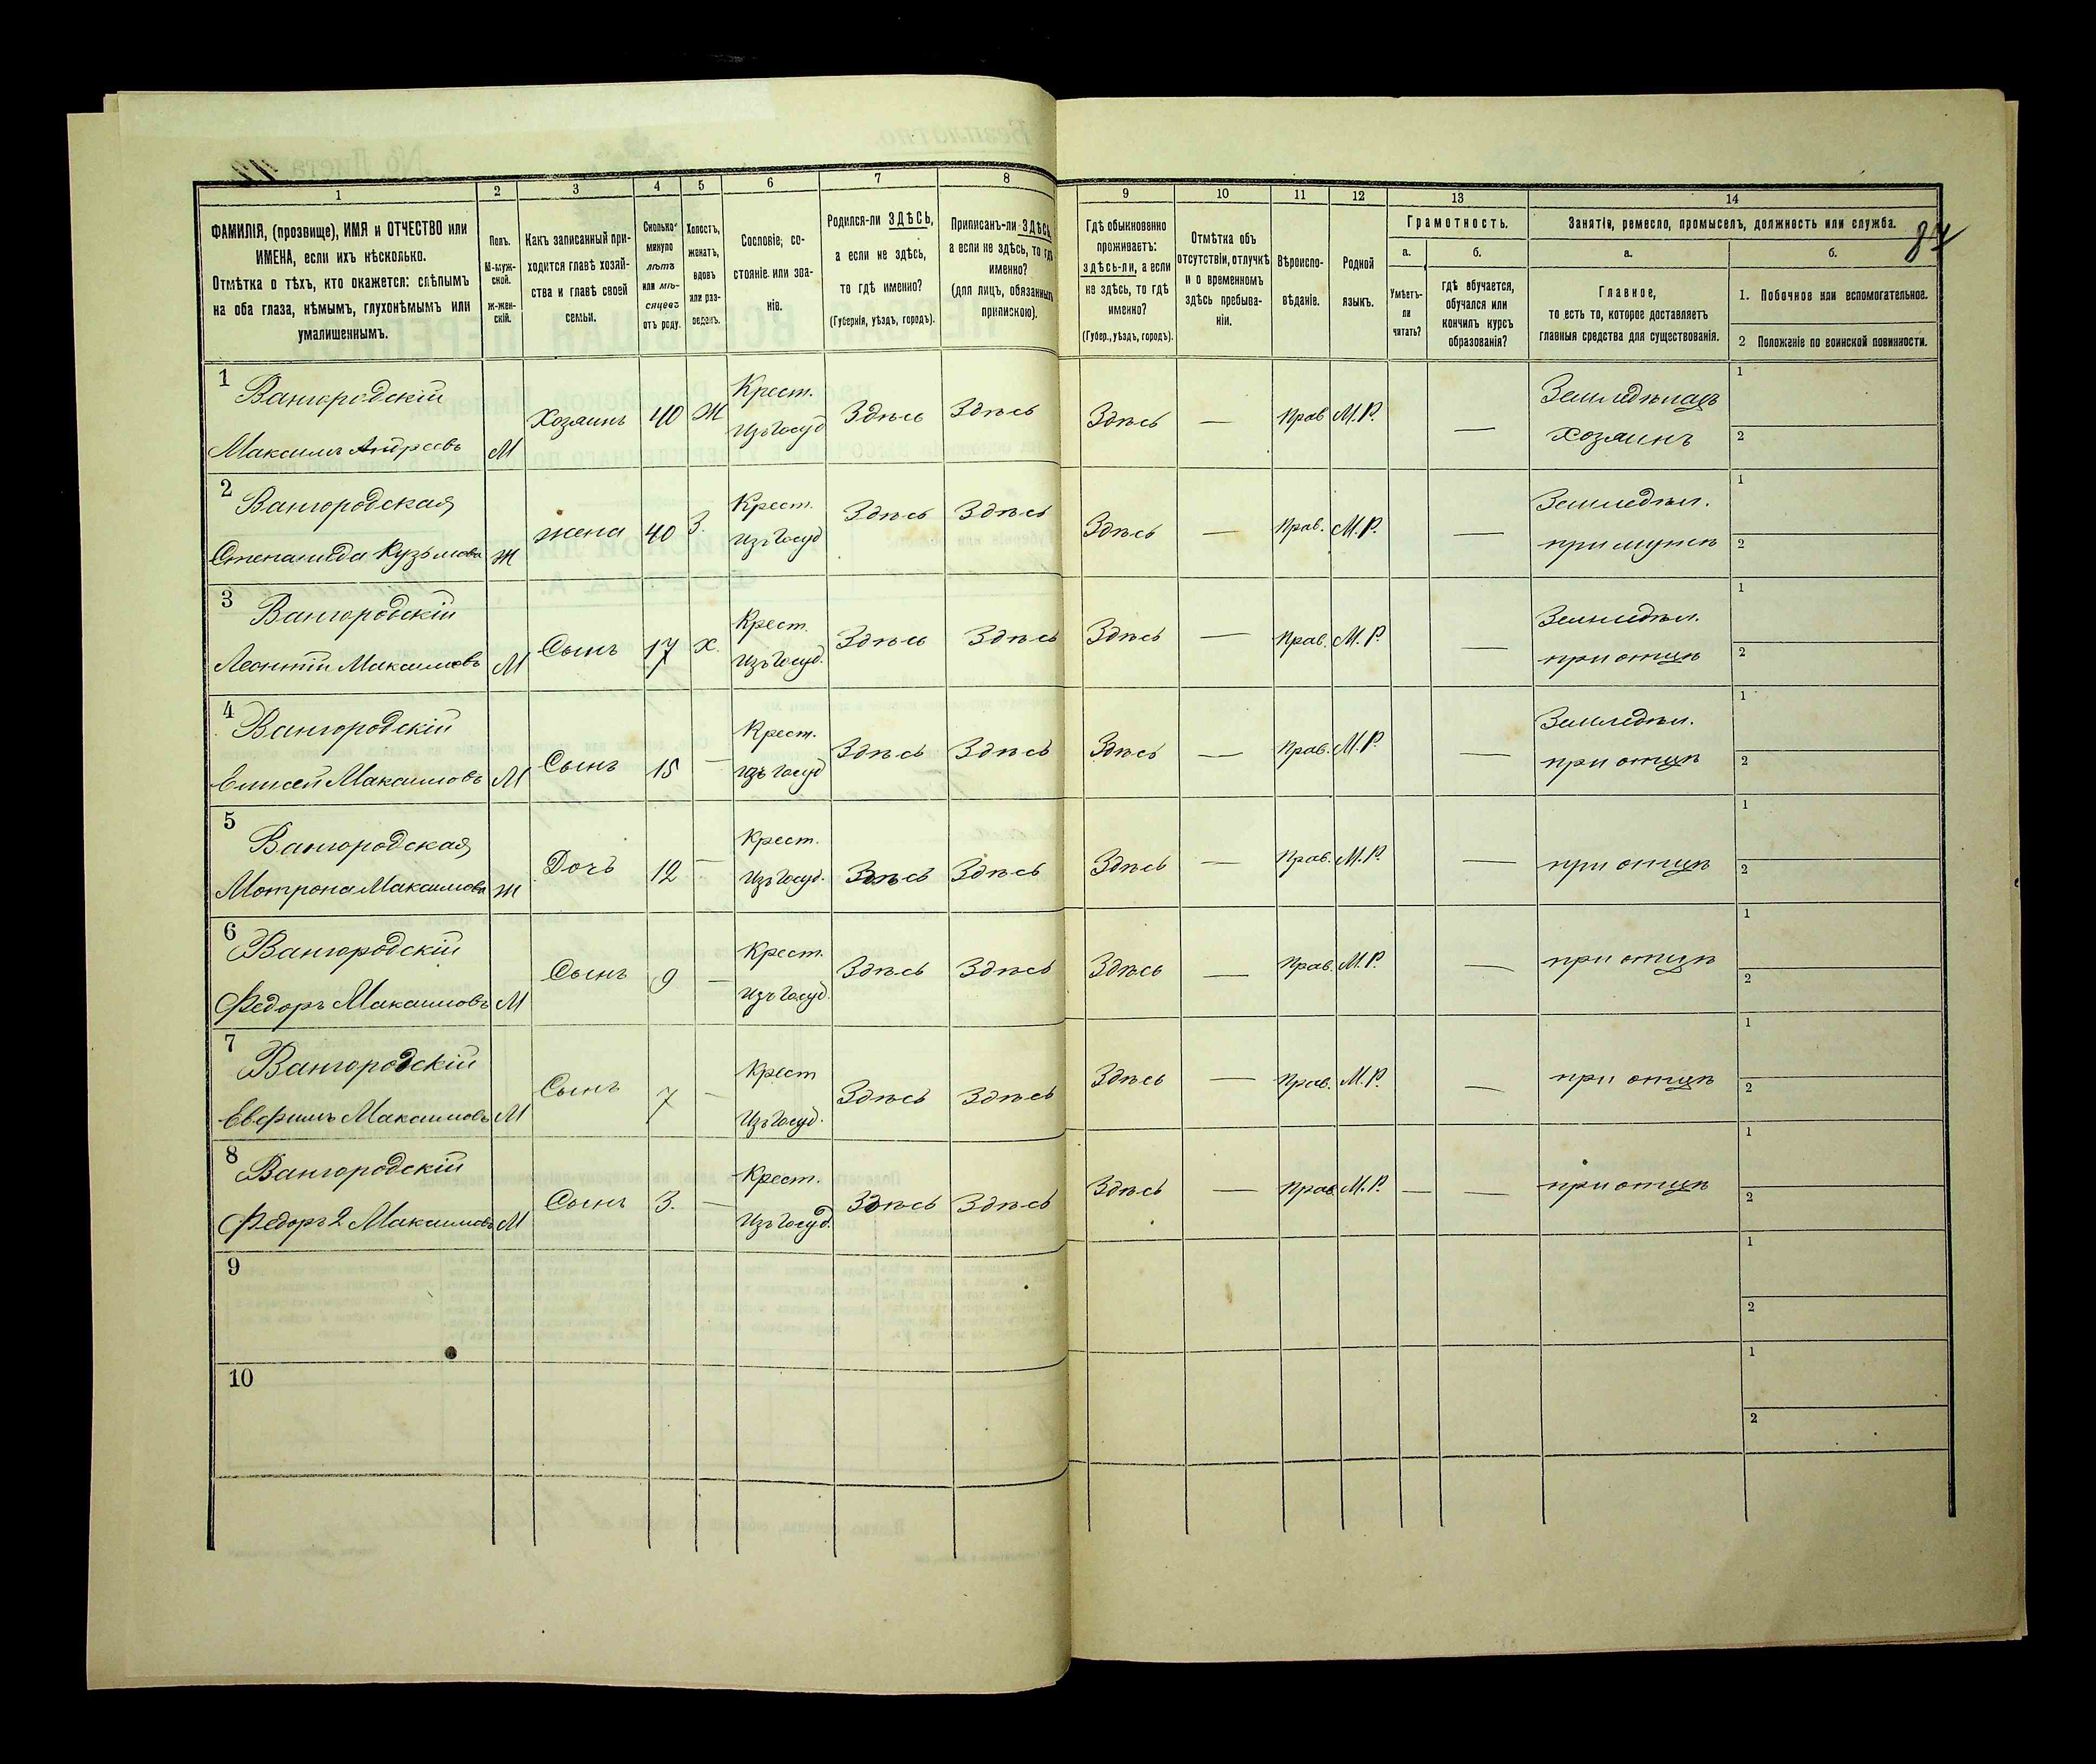 1 2 3 4 5 6 7 8 9 10 11 12 13 14
ФАМИЛІЯ, (прозвище), ИМЯ и ОТЧЕСТВО или
ИМЕНА, если ихъ нѣсколько.
Отмѣтка о тѣхъ, кто окажется: слѣпымъ
на оба глаза, нѣмымъ, глухонѣмымъ или
умалишеннымъ.
Полъ.
М-муж-
ской.
Ж-жен-
скій.
Какъ записанный при-
ходится главѣ хозяй-
ства и главѣ своей
семьи.
Сколько
минуло
лѣтъ
или мѣ-
сяцевъ
отъ роду.
Холостъ,
женатъ,
вдовъ
или раз-
веденъ.
Сословіе, со-
стояніе или зва-
ніе.
Родился-ли ЗДѢСЬ,
а если не здѣсь,
то гдѣ именно?
(Губернія, уѣздъ, городъ).
Приписанъ-ли ЗДѢСЬ,
а если не здѣсь, то гдѣ
именно?
(для лицъ, обязанныхъ
припискою).
Гдѣ обыкновенно
проживаетъ:
здѣсь-ли, а если
не здѣсь, то гдѣ
именно?
(Губер., уѣздъ, городъ).
Отмѣтка объ
отсутствіи, отлучкѣ
и о временномъ
здѣсь пребыва-
ніи.
Вѣроиспо-
вѣданіе.
Родной
языкъ.
Грамотность.
а.
Умѣетъ-
ли
читать?
б.
гдѣ обучается,
обучался или
кончилъ курсъ
образованія?
Занятіе, ремесло, промыселъ, должность или служба.
87
а.
Главное,
то есть то, которое доставляетъ
главныя средства для существованія.
б.
1. Побочное или вспомогательное.
2 Положеніе по воинской повинности.
1 Вангородскій
Максимъ Андреевъ М Хозяинъ 40 Ж Крест.
изъ Госуд Здѣсь Здѣсь Здѣсь — Прав М.Р. — Земледѣлецъ
хозяинъ 1
2
2 Вангородская
Степанида Кузьмова Ж жена 40 З. Крест.
изъ Госуд Здѣсь Здѣсь Здѣсь — Прав. М.Р. — Земледѣл.
при мужѣ 1
2
3 Вангородскій
Леонтій Максимовъ М Сынъ 17 Х. Крест.
изъ Госуд. Здѣсь Здѣсь Здѣсь — Прав. М.Р. — Земледѣл.
при отцѣ 1
2
4 Вангородскій
Елисей Максимовъ М Сынъ 15 — Крест.
изъ Госуд Здѣсь Здѣсь Здѣсь — Прав. М.Р. — Земледѣл.
при отцѣ 1
2
5 Вангородская
Мотрона Максимова Ж Дочь 12 — Крест.
изъ Госуд. Здѣсь Здѣсь Здѣсь — Прав. М.Р. — при отцѣ 1
2
6 Вангородскій
Федоръ Максимовъ М Сынъ 9 — Крест.
изъ Госуд. Здѣсь Здѣсь Здѣсь — Прав. М.Р. — при отцѣ 1
2
7 Вангородскій
Евфимъ Максимовъ М Сынъ 7 — Крест
изъ Госуд. Здѣсь Здѣсь Здѣсь — Прав. М.Р. — при отцѣ 1
2
8 Вангородскій
Федоръ 2 Максимовъ М Сынъ 3. — Крест.
изъ Госуд. Здѣсь Здѣсь Здѣсь — Прав. М.Р. — — при отцѣ 1
2
9 1
2
10 1
2